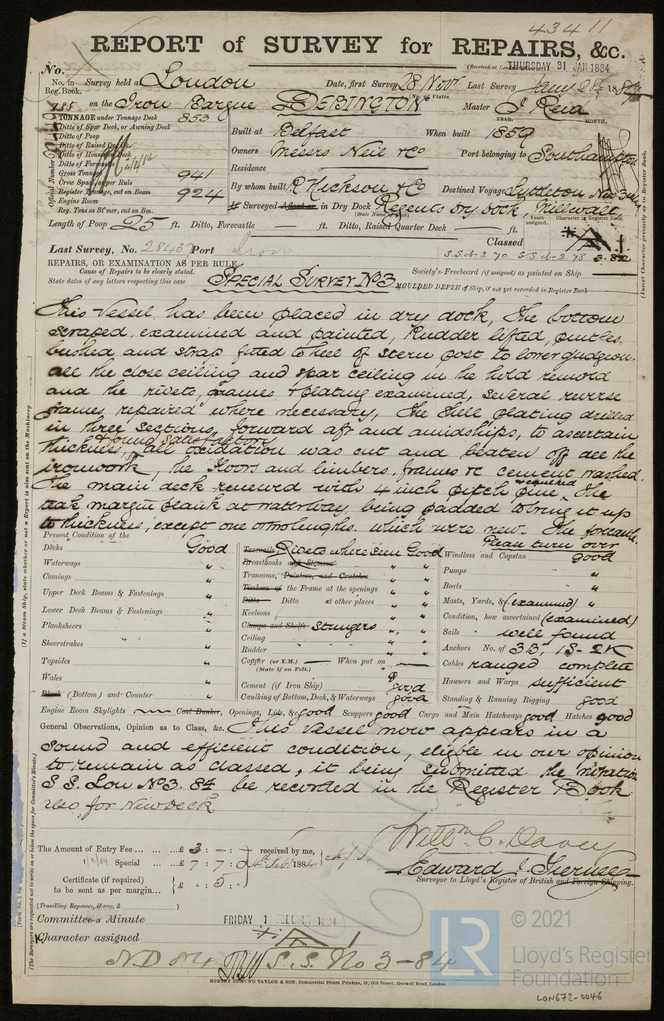 43411
REPORT of SURVEY for REPAIRS, &c.
(Received at London
THURSDAY 31 JAN 1884
No.
No. in Reg. Book.
Survey held at London Date, first Survey 28 Novr Last Survey Jany 1884
(No. of Visits
785 on the Iron Barque "DEBINGTON" Master J. Reid
TONNAGE under Tonnage Deck 853
Ditto of Spar Deck, or Awning Deck
Ditto of Poop
Ditto of Raised
Ditto of
Ditto of Forecastle
Gross Tonnage 941
Crew Space
Register Tonnage, cut on Beam 924
Engine Room
Reg. Tons as St'mer, cut on Bm.
YEAR. MONTH.
Built at Belfast When built 1859
Owners Messrs Neil & Co Port belonging to Southampton
Residence
By whom built R Hickson & Co Destined Voyage Lyttleton New
If Surveyed Afloat or in Dry Dock Regents Dry dock, Millwall
(State Name of Dock)
Years assigned.
Character in Register Book.
Length of Poop 25 ft. Ditto, Forecastle ft. Ditto, Raised Quarter Deck ft.
Classed A1
S.S. No. 3. 70 S.S. No. 2. 78 3-82
Last Survey, No. Port
REPAIRS, OR EXAMINATION AS PER RULE
Cause of Repairs to be clearly stated.
State dates of any letters respecting this case
Special Survey No 3
Society's Freeboard (if assigned) as painted on Ship
MOULDED DEPTH of Ship, if not yet recorded in Register Book
This vessel has been placed in dry dock, the bottom
scraped, examined and painted, Rudder lifted, pintles
bushed and strap fitted to heel of stern post to lower gudgeon.
all the close ceiling and spar ceiling in the hold removed
and the rivets, frames & plating examined, several reverse
frames repaired where necessary, The shell plating drilled
in three sections, forward aft and amidships, to ascertain
& found satisfactory
thickness, all oxidation was cut and beaten off all the
ironwork, the floors and limbers, frames &c cement washed.
The main deck renewed with 4 inch pitch pine, The
required
teak margin plank at waterway, being padded to bring it up
to thickness, except one or two lengths. which were new. The
Please turn over
Present Condition of the
Decks Good
Waterways "
Comings "
Upper Deck Beams & Fastenings "
Lower Deck Beams & Fastenings "
Planksheers "
Sheerstrakes "
Topsides "
Wales "
(Bottom) and Counter "
Treenails Rivets where seen Good
Breasthooks and Stemson " "
Transoms, Pointers, and Crutches " "
Timbers of the Frame at the openings " "
Ditto Ditto at other places " "
Keelsons " "
Clamps and Shelfs Stringers " "
Ceiling " "
Rudder " "
Copper (or Y.M.) — When put on —
(State if on Felt.)
Cement (if Iron Ship) good
Caulking of Bottom, Deck, & Waterways good
Windlass and Capstan good
Pumps "
Boats "
Masts, Yards, & (examined) "
Condition, how ascertained (examined)
Sails well found
Anchors No. of 3B, 1S-2K
Cables ranged complete
Hawsers and Warps sufficient
Standing & Running Rigging good
Engine Room Skylights — Coal Bunker, Openings, Lids, & good Scuppers good Cargo and Main Hatchways good Hatches good
General Observations, Opinion as to Class, &c. This vessel now appears in a
sound and efficient condition, eligible in our opinion
to remain as classed, it being submitted the notation
S.S. Lon No 3. 84 be recorded in the Register Book
also for New deck
The Amount of Entry Fee ... £ 3 : - :
1/2/84 Special ... £ 7 : 7 : 0
received by me,
4th Feb 1884
Certificate (if required) to be sent as per margin... £ : 5 :
(Travelling Expenses, if any, £ )
Willm C. Davey
Edward
Surveyor to Lloyd's Register of British and Foreign Shipping.
Committee's Minute FRIDAY 1 FEBRUARY 1884
Character assigned A1
ND 84 S.S. No 3-84
ROBERT EDMUND TAYLOR & SON, Commercial Steam Printers, 19, Old Street, Goswell Road, London
LR
© 2021
Lloyd's Register
Foundation
LON672-0046